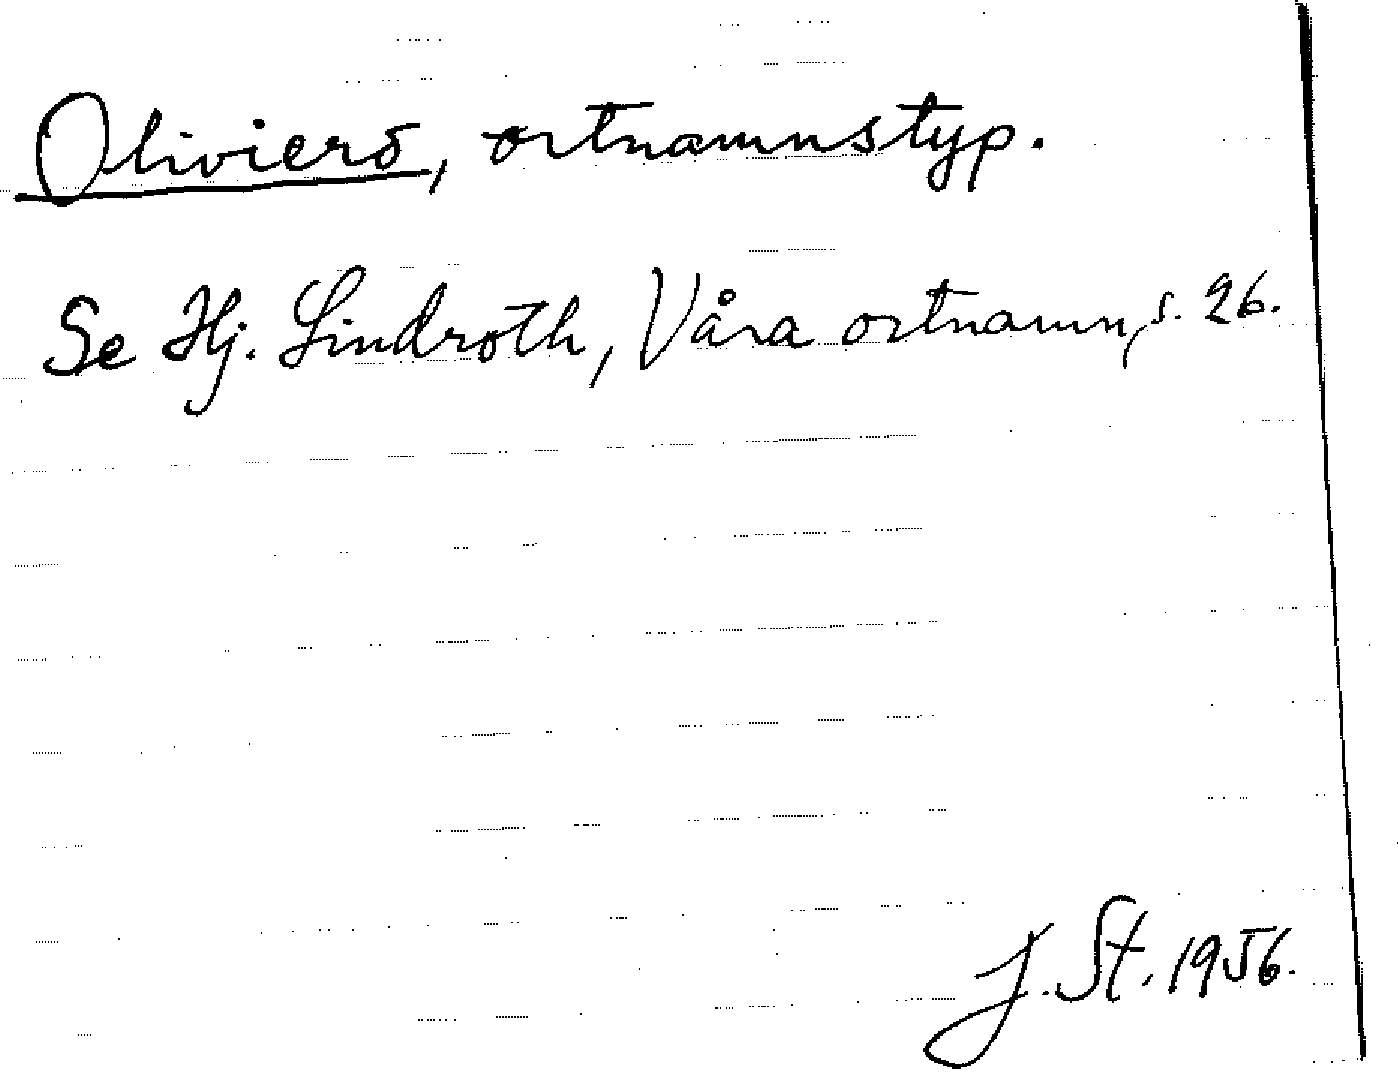 Olivierō, ortnamnstyp.
Se Hj. Lindroth, Våra ortnamn, s. 26.
J. St. 1956.